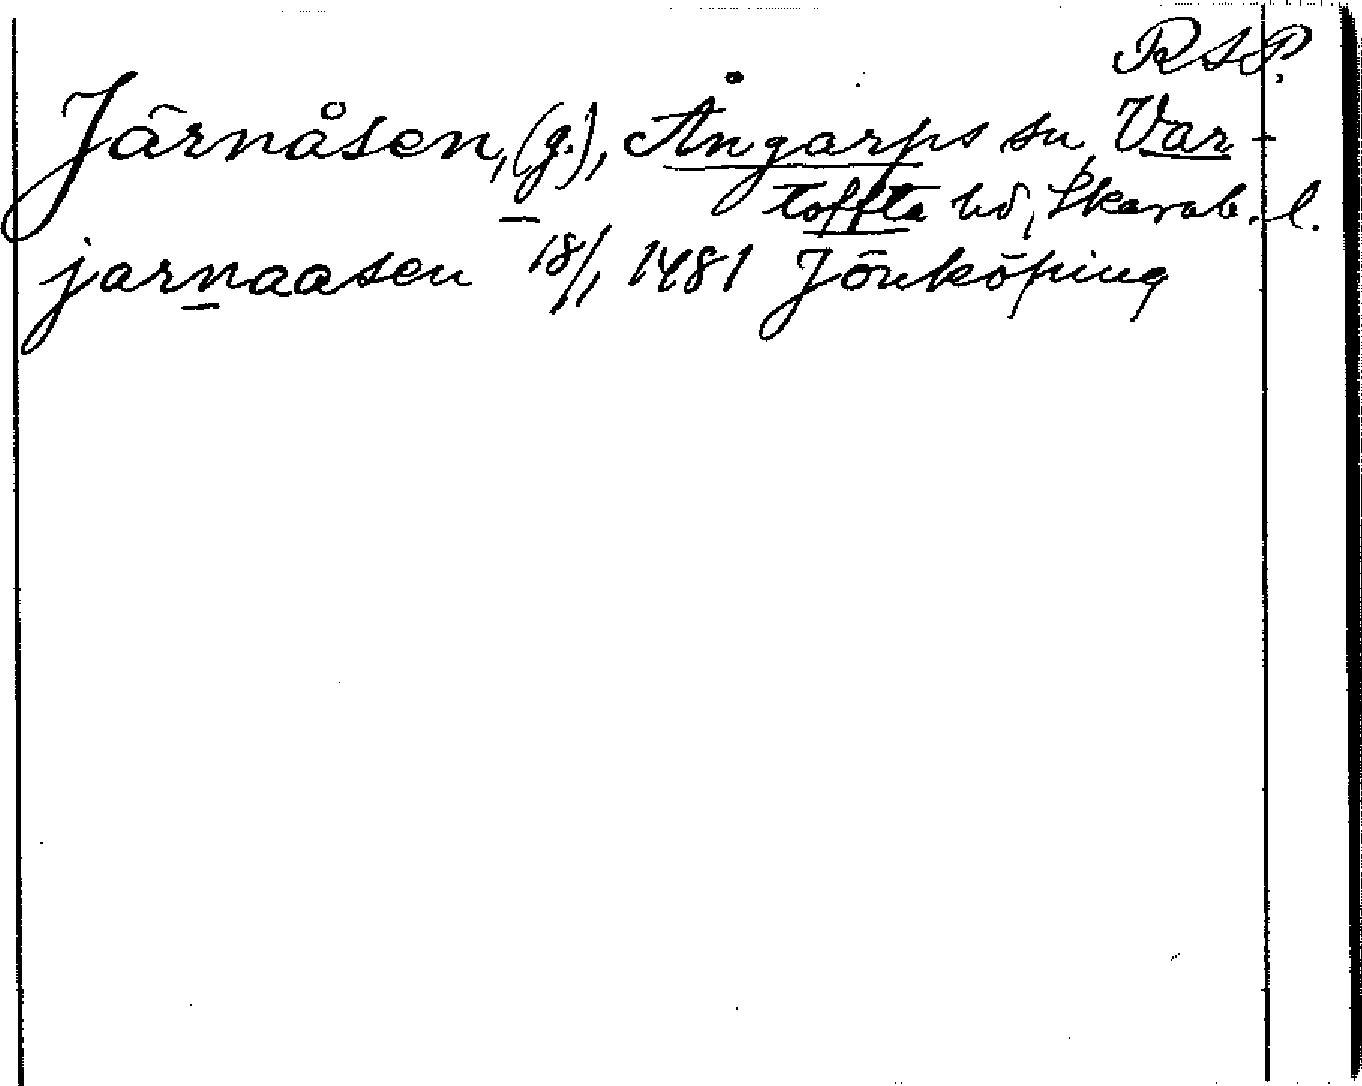 RAP.
Järnåsen, (g.), Ångarps sn, Var-
toffta hd, Skarab. l.
jarnaasen 18/1 1481 Jönköping